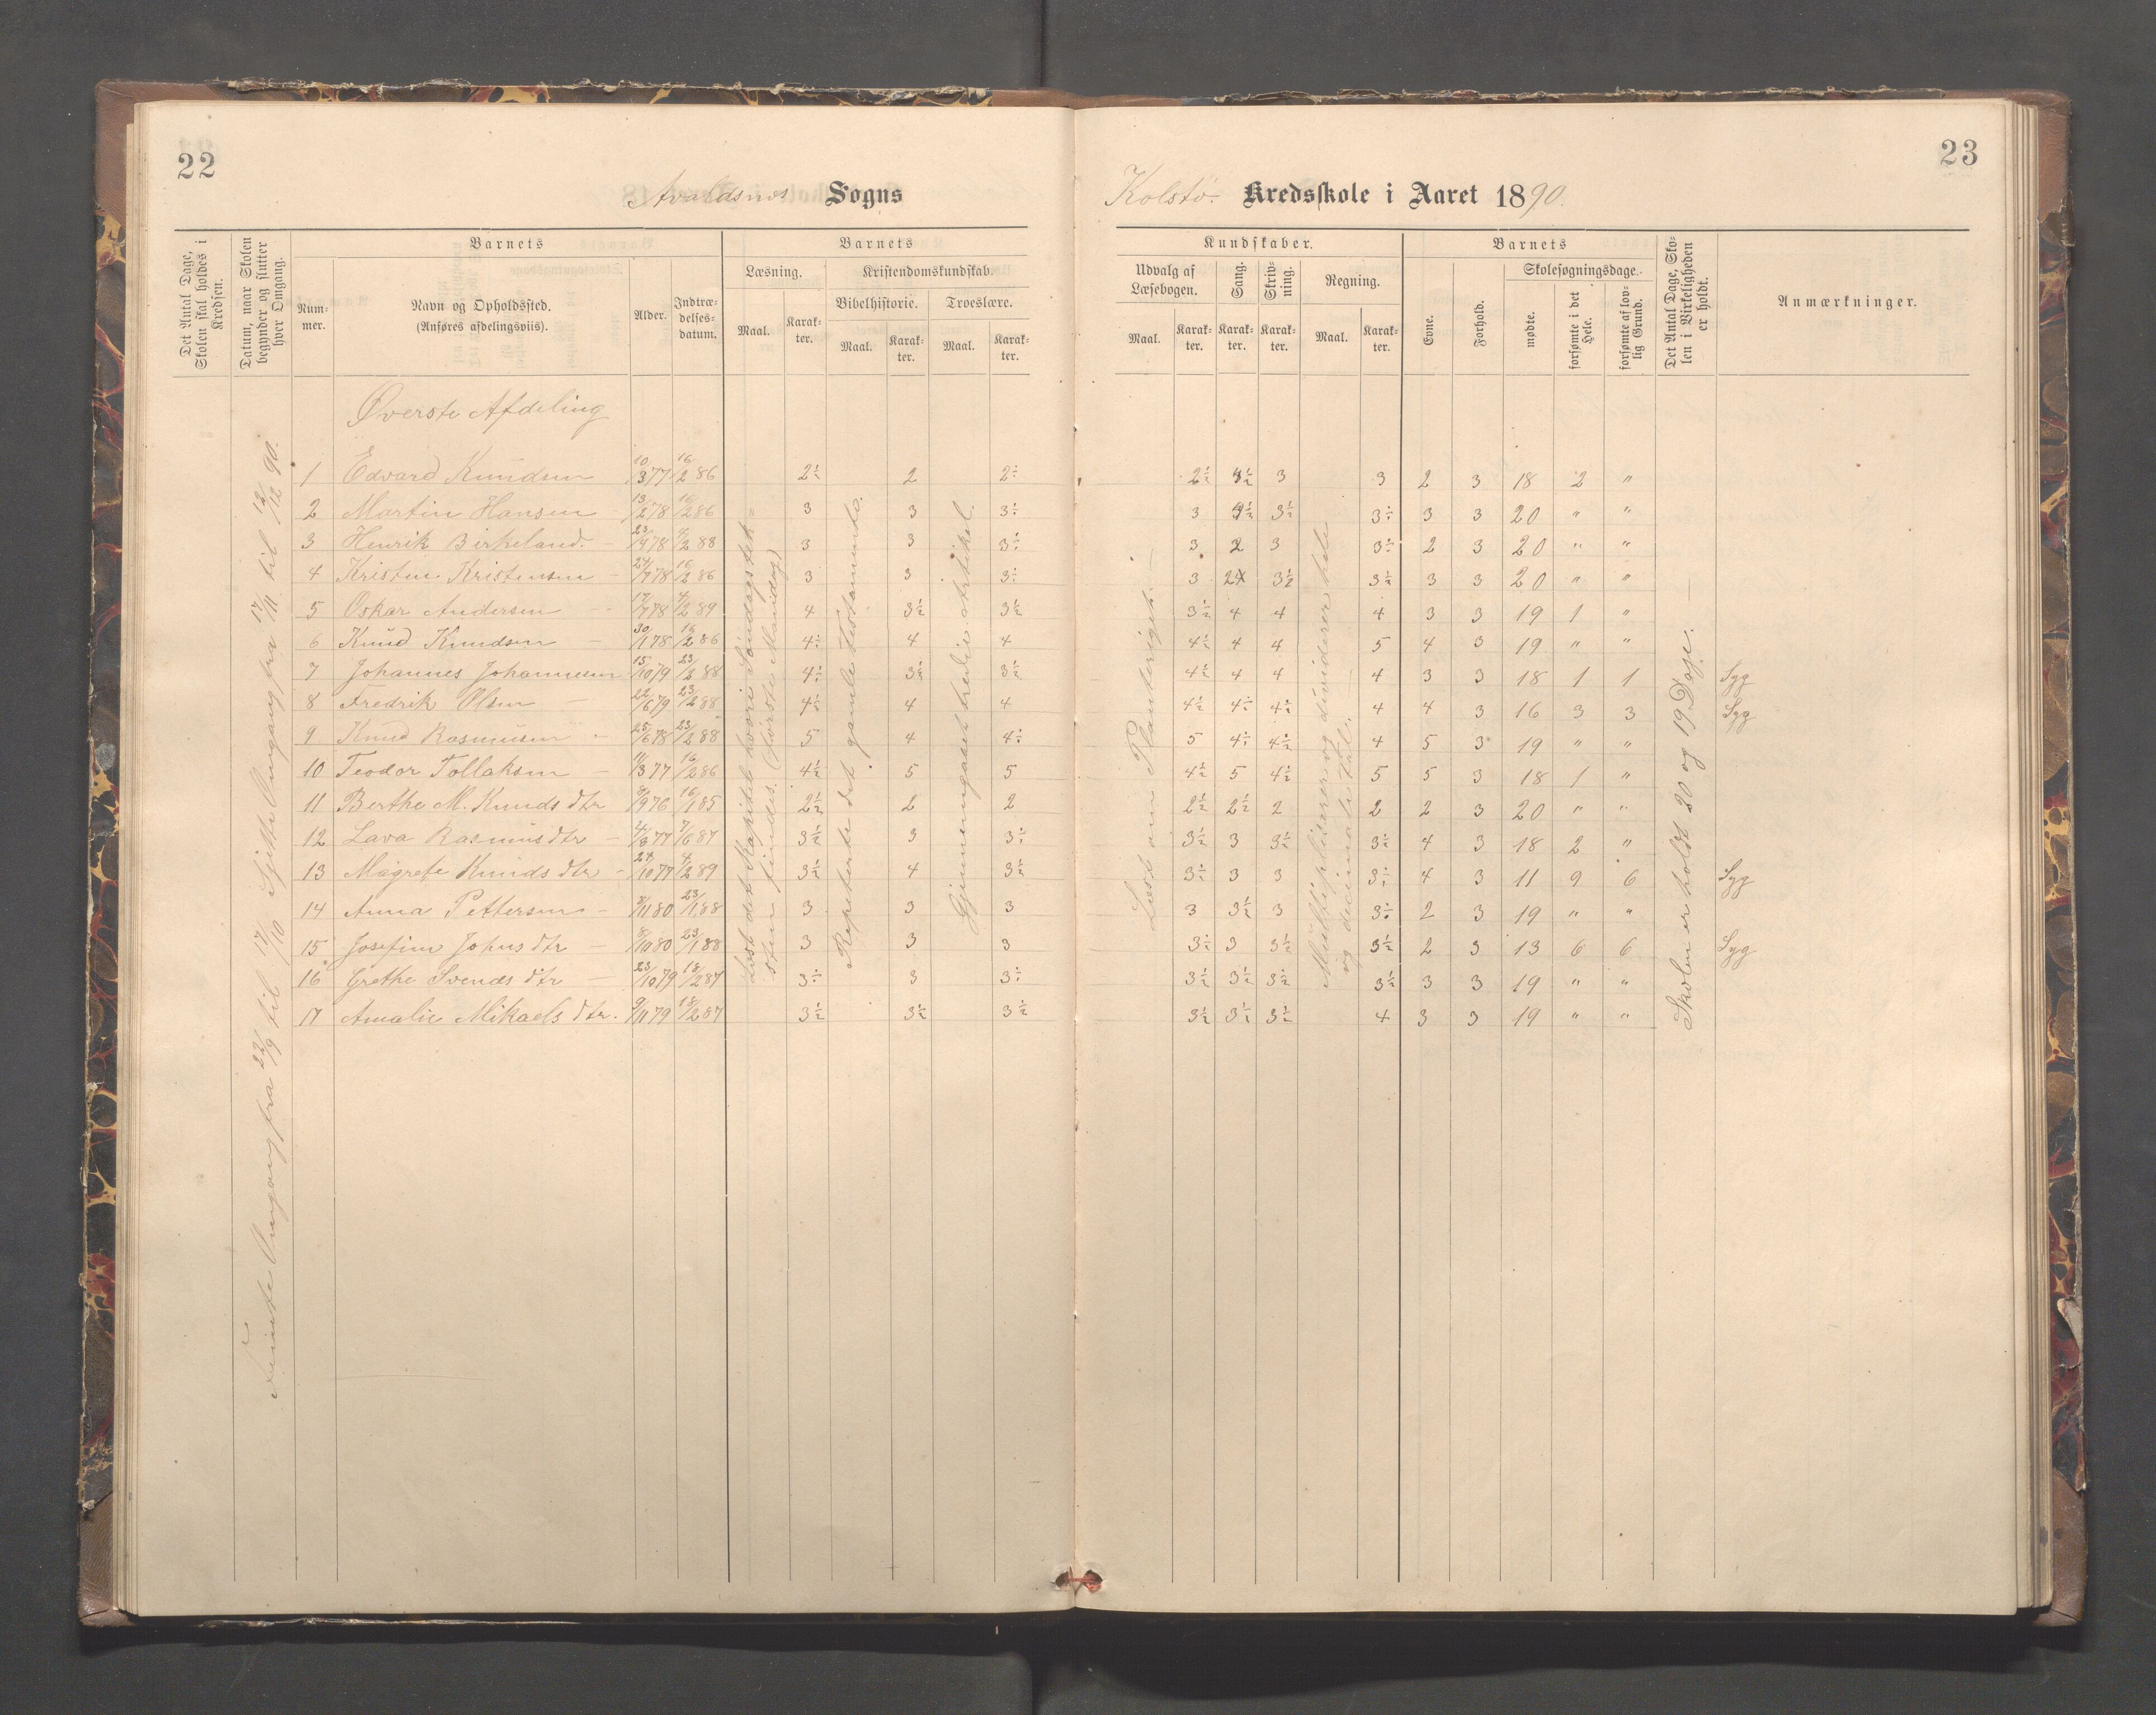 22
Avaldsnes Sogns
Det Antal Dage, Skolen skal holdes i Kredsen.
Datum, naar Skolen begynder og slutter hver Omgang.
Barnets
Nummer.
Navn og Opholdssted.
(Anføres afdelingsviis).
Alder.
Indtrædelsesdatum.
Barnets
Læsning.
Kristendomskundskab.
Bibelhistorie.
Troeslære.
Maal.
Karakter.
Maal.
Karakter.
Maal.
Karakter.
Øverste Afdeling
1 Edvard Knudsen 10/3 77 16/2 86 2½ 2 2÷
2 Martin Hansen 13/2 78 16/2 86 3 3 3÷
3 Henrik Birkeland 23/4 78 4/2 88 3 3 3÷
4 Kristen Kristensen 24/7 78 16/2 86 3 3 3÷
5 Oskar Andersen 17/7 78 4/2 89 4 3½ 3½
6 Knud Knudsen 30/1 78 16/2 86 4÷ 4 4
7 Johannes Johannesen 15/10 79 23/2 88 4÷ 3½ 3½
8 Fredrik Olsen 22/6 79 23/2 88 4½ 4 4
9 Knud Rasmusen 25/6 78 23/2 88 5 4 4÷
10 Teodor Tollaksen 11/3 77 16/2 86 4½ 5 5
11 Berthe M. Knuds dtr 8/9 76 16/1 85 2½ 2 2
12 Lava Rasmusdtr 4/3 77 7/6 87 3½ 3 3÷
13 Magrete Knuds dtr 24/10 77 4/2 89 3½ 4 3½
14 Anna Pettersen 8/11 80 23/1 88 3 3 3
15 Josefine Johns dtr 8/10 80 23/1 88 3 3 3
16 Grethe Svends dtr 23/10 79 18/2 87 3÷ 3 3÷
17 Amalie Mikaels dtr. 9/11 79 18/2 87 3½ 3½ 3½
Femte Omgang fra 22/9 til 17/10 Sjette Omgang fra 17/11 til 12/12 90.
Læst det Kapitel hvori Søndagstek-
sten findes. (første Mandag)
Repeterte det gamle testamente.
Gjennemgaaet tredie Artikel.
23
Kolstø. Kredsskole i Aaret 1890.
Kundskaber.
Udvalg af Læsebogen.
Sang.
Skrivning.
Regning.
Maal.
Karakter.
Karakter.
Karakter.
Maal.
Karakter.
Barnets
Evne.
Forhold.
Skolesøgningsdage.
mødte.
forsømte i det Hele.
forsømte af lovlig Grund.
Det Antal Dage, Skolen i Virkeligheden er holdt.
Anmærkninger.
2½ 3½ 3 3 2 3 18 2 "
3 3½ 3½ 3÷ 3 3 20 " "
3 2 3 3÷ 2 3 20 " "
3 24 3½ 3½ 3 3 20 " "
3½ 4 4 4 3 3 19 1 "
4½ 4 4 5 4 3 19 " "
4½ 4 4 4 3 3 18 1 1 Syg
4½ 4÷ 4½ 4 4 3 16 3 3 Syg
5 4÷ 4½ 4 5 3 19 " "
4½ 5 4½ 5 5 3 18 1 "
2½ 2½ 2 2 2 3 20 " "
3½ 3 3½ 3÷ 4 3 18 2 "
3÷ 3 3 3÷ 4 3 11 9 6 Syg
3 3½ 3 3÷ 2 3 19 " "
3÷ 3 3½ 3½ 2 3 13 6 6 Syg
3½ 3½ 3½ 3½ 3 3 19 " "
3½ 3½ 3½ 4 3 3 19 " "
Læst om Planteriget.
Multiplicerer og dividerer hele
og decimale Tal.
Skolen er holdt 20 og 19 Dage.